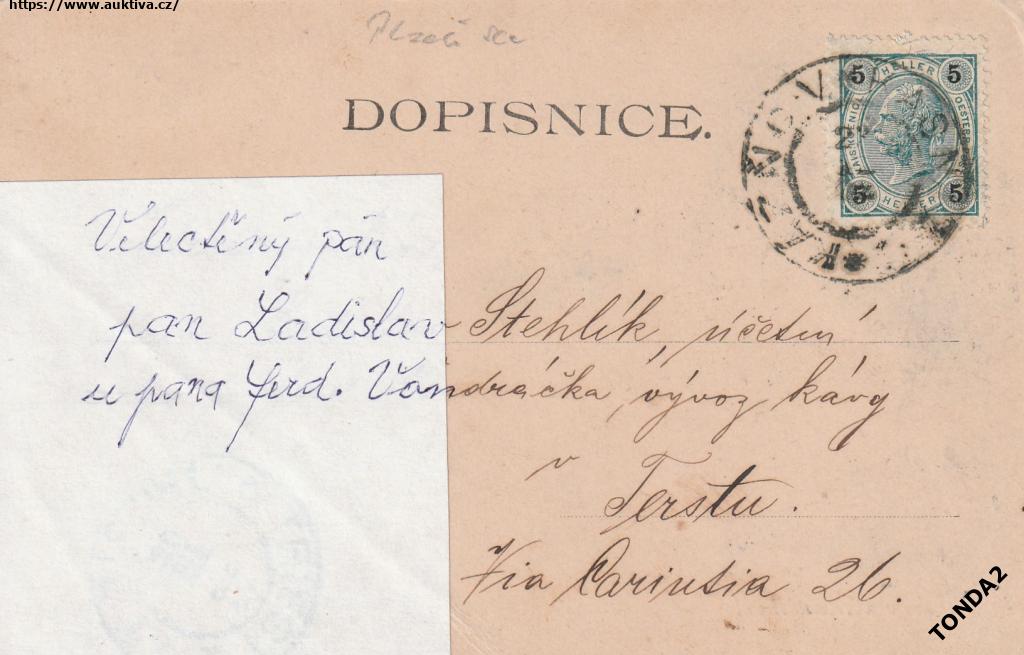 https://www.auktiva.cz/
DOPISNICE.
5 HELLER 5
5 HELLER 5
Velectěný pán
pan Ladislav Stehlík, účetní
u pana Ferd. Vondráčka, vývoz kávy
v
Terstu.
Via Carintia 26.
TONDA2